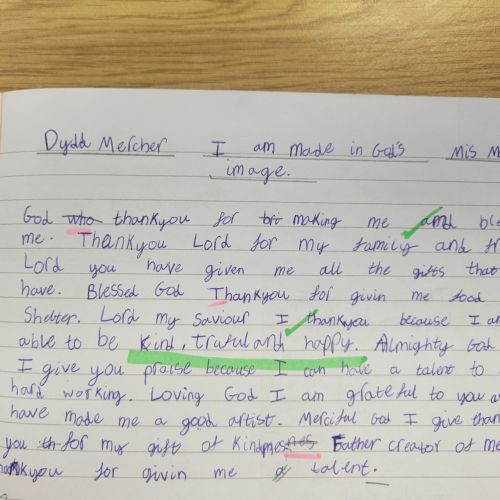 Dydd Mercher I am made in God's Mis M
image.
God who thankyou for making me and ble
me. Thankyou Lord for my family and fr
Lord you have given me all the gifts that
have. Blessed God Thankyou for givin me food
Shelter. Lord my Saviour I thankyou because I a
able to be Kind, truful and happy. Almighty God
I give you praise because I can have a talent to
hard working. Loving God I am grateful to you a
have made me a good artist. Merciful God I give than
you th for my gift of Kindness Father creator of me
thankyou for givin me a talent.